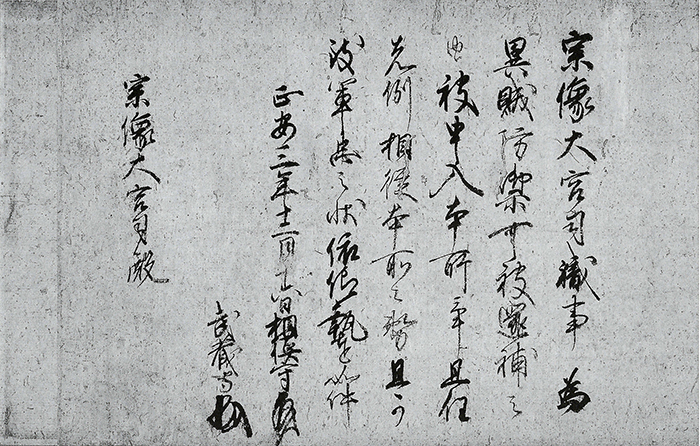 宗像大宮司職事為
異賊防禦可被還補之
由被申入本所畢且任
先例相従本所之務且可
致軍忠之状依仰執達如件
正安三年十二月十六日相模守
武蔵守
宗像大宮司殿